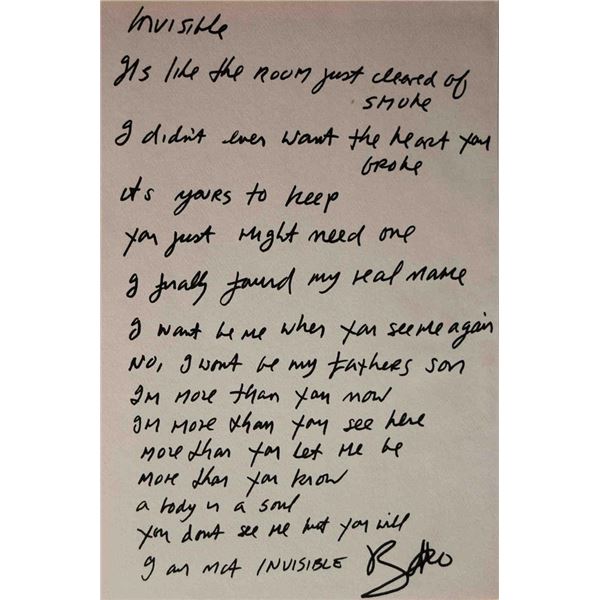 Invisible
Its like the ROOM just cleared of
smoke
I didn't even want the heart you
broke
its yours to keep
you just might need one
I finally found my real name
I wont be me when you see me again
No, I wont be my fathers son
I'm more than you now
I'm more than you see here
more than you let me be
more than you know
a body in a soul
you dont see me but you will
I am not INVISIBLE